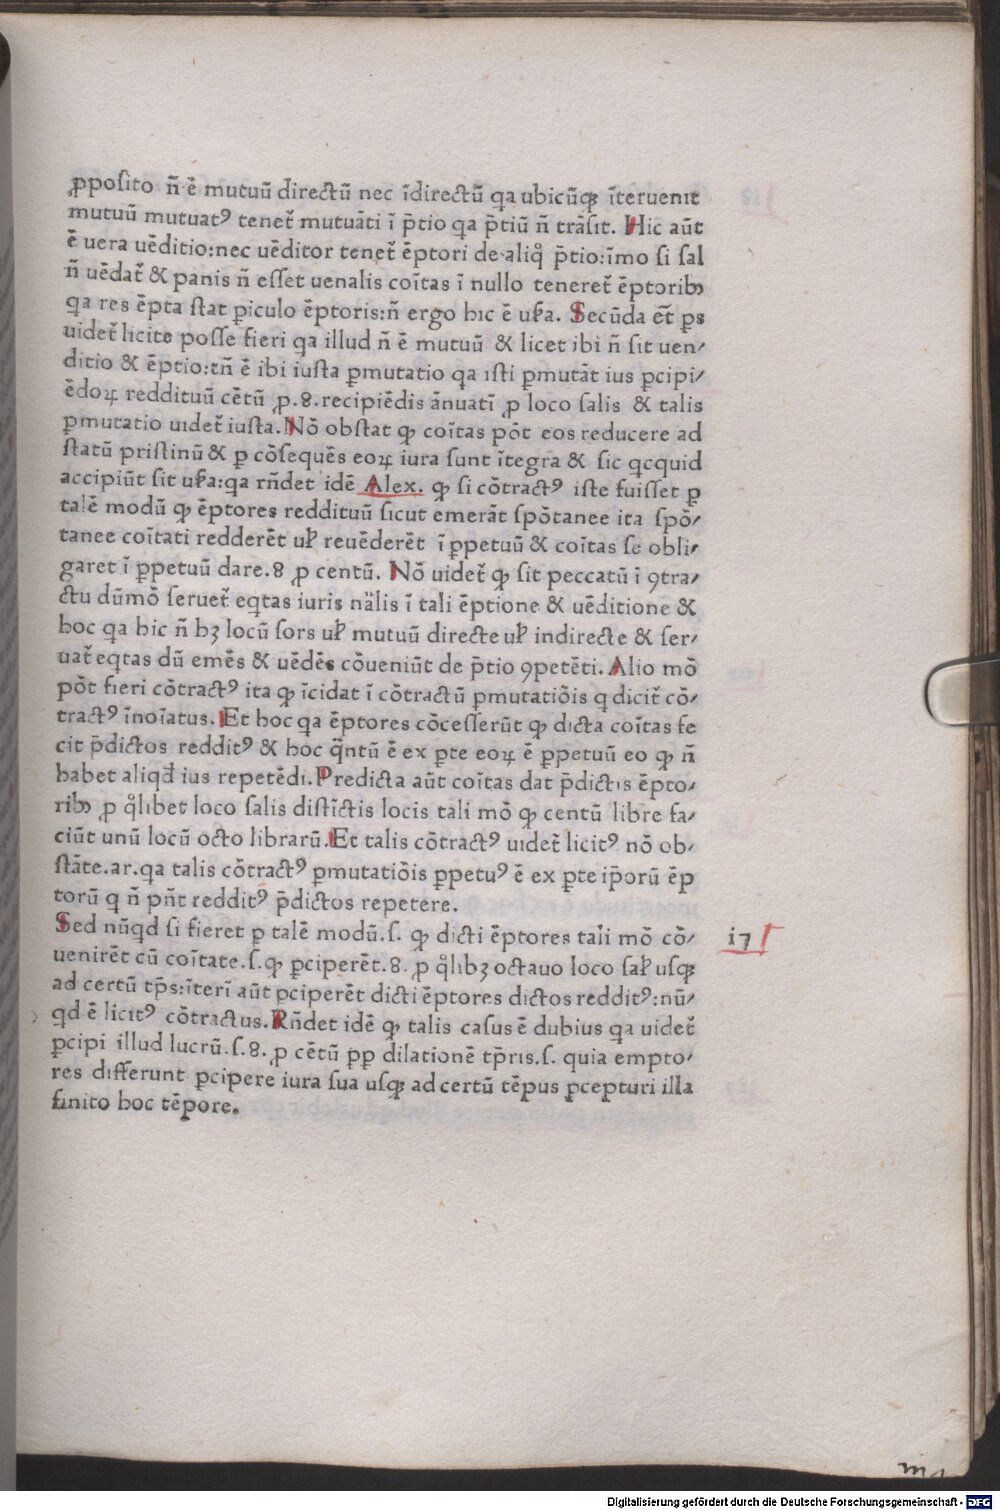 ꝓposito n̄ ē mutuū directū nec īdirectū qa ubicūqꝫ īteruenit
mutuū mutuatꝰ tenet̄ mutuāti ī p̄tio qa p̄tiū n̄ trāsit. Hic aūt
ē uera uēditio:nec uēditor tenet̄ ēptori de aliq̊ p̄tio:īmo si sal
n̄ uēdat̄ & panis n̄ esset uenalis coītas ī nullo teneret̄ ēptoribꝫ
qa res ēpta stat ꝑiculo ēptoris:n̄ ergo hic ē usᷓa. Secūda et̄ ps
uidet̄ licite posse fieri qa illud n̄ ē mutuū & licet ibi n̄ sit uen/
ditio & ēptio:tn̄ ē ibi iusta ꝑmutatio qa isti ꝑmutāt ius ꝑcipi/
ēdoꝝ reddituū cētū ꝓ.8.recipiēdis ānuatī ꝓ loco salis & talis
ꝑmutatio uidet̄ iusta. Nō obstat ꝙ coītas pōt eos reducere ad
statū pristinū & ꝑ cōsequēs eoꝝ iura sunt ītegra & sic qcquid
accipiūt sit usᷓa:qa rn̄det idē Alex. ꝙ si cōtractꝰ iste fuisset ꝑ
talē modū ꝙ ēptores reddituū sicut emerāt spōtanee ita spō/
tanee coītati redderēt ul̄ reuēderēt ī ꝑpetuū & coītas se obli/
garet ī ꝑpetuū dare.8 ꝓ centū. Nō uidet̄ ꝙ sit peccatū ī ꝯtra/
ctu dūmō seruet̄ eqtas iuris nālis ī tali ēptione & uēditione &
hoc qa hic n̄ hꝫ locū sors ul̄ mutuū directe ul̄ indirecte & ser/
uat̄ eqtas dū emēs & uēdēs cōueniūt de p̄tio ꝯpetēti. Alio mō
pōt fieri cōtractꝰ ita ꝙ īcidat ī cōtractū ꝑmutatiōis q dicit̄ cō/
tractꝰ īnoīatus. Et hoc qa ēptores cōcesserūt ꝙ dicta coītas fe
cit p̄dictos redditꝰ & hoc q̄ntū ē ex ꝑte eoꝝ ē ꝑpetuū eo ꝙ n̄
habet aliqd̄ ius repetēdi. Predicta aūt coītas dat p̄dictis ēpto/
ribꝫ ꝓ q̊libet loco salis distīctis locis tali mō ꝙ centū libre fa/
ciūt unū locū octo librarū. Et talis cōtractꝰ uidet̄ licitꝰ nō ob/
stāte.ar.qa talis cōtractꝰ ꝑmutatiōis ꝑpetuꝰ ē ex ꝑte ip̄orū ēp
torū q n̄ pn̄t redditꝰ p̄dictos repetere.
Sed nūqd si fieret ꝑ talē modū.s. ꝙ dicti ēptores tali mō cō/
uenirēt cū coītate.s.ꝙ ꝑciperēt.8. ꝓ q̊libꝫ octauo loco sal̄ usqꝫ
ad certū tp̄s:īterī aūt ꝑciperēt dicti ēptores dictos redditꝰ:nū/
qd ē licitꝰ cōtractus. Rn̄det idē ꝙ talis casus ē dubius qa uidet̄
ꝑcipi illud lucrū.s.8. ꝓ cētū ꝓp dilationē tp̄ris.s. quia empto/
res differunt ꝑcipere iura sua usqꝫ ad certū tēpus ꝑcepturi illa
finito hoc tēpore.
i7
Digitalisierung gefördert durch die Deutsche Forschungsgemeinschaft - DFG